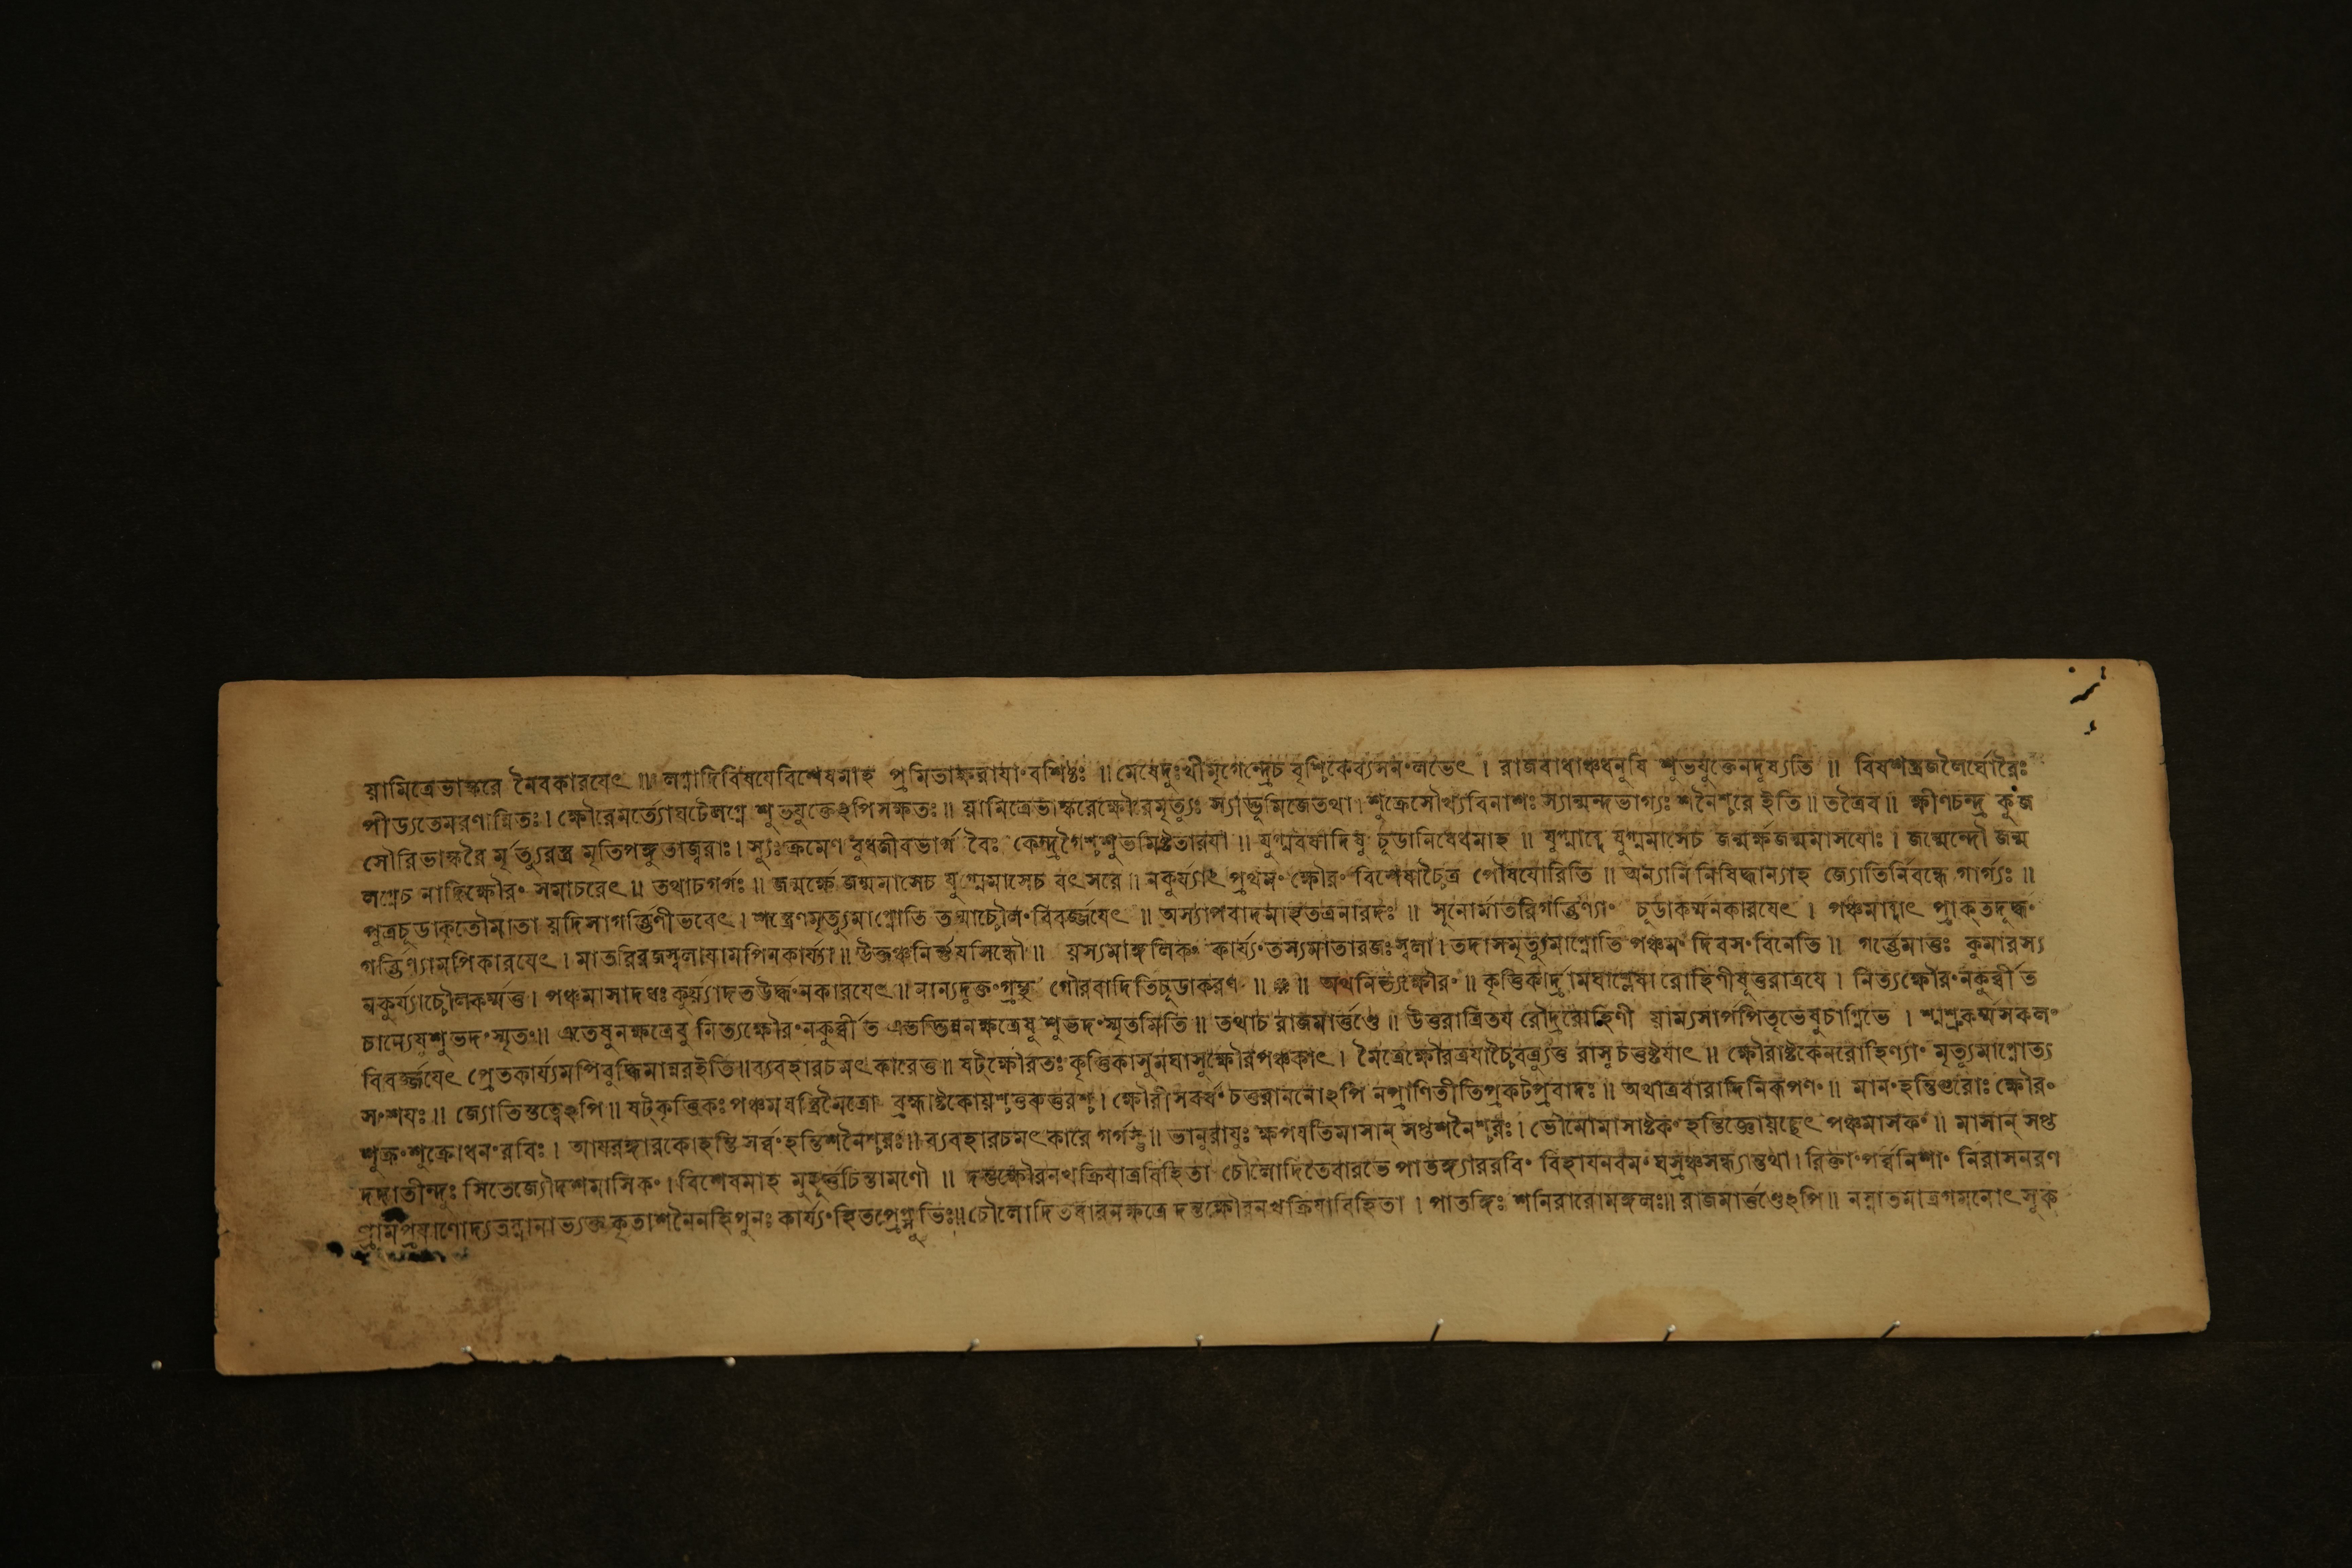 য়ামিত্রেভাস্করে নৈবকারযেৎ ॥ লগ্নাদিবিষযেবিশেষমাহ প্রমিতাক্ষরাযাং বশিষ্ঠঃ ॥ মেষেদুঃখীমৃগেন্দ্রেচ বৃশ্চিকেব্যসনংলভেৎ । রাজবাধাঞ্চধনুষি শুভযুক্তেনদূষ্যতি ॥ বিষশস্ত্রজলৈর্ঘোরৈঃ
পীড্যতেমরণান্বিতঃ । ক্ষৌরেমর্ত্যোঘটেলগ্নে শুভযুক্তেঽপিসক্ষতঃ ॥ য়ামিত্রেভাস্করেক্ষৌরেমৃত্যুঃ স্যাদ্ভূমিজেতথা । শুক্রেসৌখ্যবিনাশঃ স্যান্মন্দভাগ্যঃ শনৈশ্চরে ইতি ॥ তত্রৈব ॥ ক্ষীণচন্দ্র কুজ
সৌরিভাস্করৈ র্মৃত্যুরস্ত্র মৃতিপঙ্গুতাজ্বরাঃ । স্যুঃ ক্রমেণ বুধজীবভার্গ বৈঃ কেন্দ্রগৈশ্চশুভমিষ্টতারযা ॥ যুগ্মবর্ষাদিষু চূডানিষেধমাহ ॥ যুগ্মাব্দে যুগ্মমাসেচ জন্মর্ক্ষজন্মমাসযোঃ । জন্মেন্দৌ জন্ম
লগ্নেচ নাদ্যিক্ষৌরং সমাচরেৎ ॥ তথাচগর্গঃ ॥ জন্মর্ক্ষে জন্মমাসেচ যুগ্মমাসেচ বৎসরে ॥ নকুর্য্যাৎ প্রথমং ক্ষৌরং বিশেষাচ্চৈত্র পৌষযোরিতি ॥ অন্যানি নিষিদ্ধান্যাহ জ্যোতির্নিবন্ধে গার্গ্যঃ ॥
পুত্রচূডাকৃতৌমাতা য়দিসাগর্ব্ভিণীভবেৎ । শস্ত্রেণমৃত্যুমাপ্নোতি তস্মাচ্চৌলংবিবর্জ্জযেৎ ॥ অস্যাপবাদমাহতত্রনারদঃ ॥ সূনোর্মাতরিগর্ব্ভিণ্যাং চূডাকর্ম্মনকারযেৎ । পঞ্চমাসাৎ প্রাক্তদূর্দ্ধং
গর্ব্ভিণ্যামপিকারযেৎ । মাতরিরজস্বলাযামপিনকার্য্যা ॥ উক্তঞ্চনির্ণযসিন্ধৌ ॥ য়স্যমাঙ্গলিকং কার্য্যংতস্যমাতারজঃস্বলা । তদাসমৃত্যুমাপ্নোতি পঞ্চমং দিবসংবিনেতি ॥ গর্ব্ভেমাতুঃ কুমারস্য
নকুর্য্যাচ্চৌলকর্ম্মতু । পঞ্চমাসাদধঃ কুর্য্যাদতউর্দ্ধংনকারযেৎ ॥ নান্যদুক্তংগ্রন্থ গৌরবাদিতিচূডাকরণ ॥ ॥ অথনিত্যক্ষৌরং ॥ কৃত্তিকার্দ্রামঘাশ্লেষা রোহিণীষূত্তরাত্রযে । নিত্যক্ষৌরংনকুর্ব্বী ত
চান্যেষুশুভদংস্মৃতং ॥ এতেষুনক্ষত্রেষু নিত্যক্ষৌরংনকুর্ব্বী ত এতদ্ভিন্ননক্ষত্রেষু শুভদংস্মৃতমিতি ॥ তথাচ রাজমার্ত্তণ্ডে ॥ উত্তরাত্রিতয রৌদ্ররোহিণী য়াম্যসার্পপিতৃভেষুচাগ্নিভে । শ্মশ্রুকর্ম্মসকলং
বিবর্জ্জযেৎ প্রেতকার্য্যমপিবুদ্ধিমান্নরইতি ॥ ব্যবহারচমৎকারেতু ॥ ষট্ক্ষৌরতঃ কৃত্তিকাসুমঘাসুক্ষৌরপঞ্চকাৎ । মৈত্রেক্ষৌরত্রযাচ্চৈব ত্র্যুত্ত রাসু চতুষ্টযাৎ ॥ ক্ষৌরাষ্টকেনরোহিণ্যাং মৃত্যুমাপ্নোত্য
সংশযঃ ॥ জ্যোতিস্তত্বেঽপি ॥ ষট্কৃত্তিকঃ পঞ্চমঘস্ত্রিমৈত্রো ব্রহ্মাষ্টকোয়শ্চতুরুত্তরশ্চ । ক্ষৌরী চতুরাননোঽপি নপ্রাণিতীতিপ্রকটপ্রবাদঃ ॥ অথাত্রবারাদিনিরূপণং ॥ মানংহন্তিগুরোঃ ক্ষৌরং
শুক্রংশুক্রোধনংরবিঃ । আযুরঙ্গারকোহন্তি সর্ব্বংহন্তিশনৈশ্চরঃ ॥ ব্যবহারচমৎকারে গর্গস্তু ॥ ভানুরাযুঃ ক্ষপযতিমাসান্ সপ্তশনৈশ্চরঃ । ভৌমোমাসাষ্টকংহন্তিজ্ঞোয়চ্ছেৎ পঞ্চমাসকং ॥ মাসান্ সপ্ত
দদাতীন্দুঃ সিতেজ্যৌদশমাসিকং । বিশেষমাহ মুহূর্ত্তচিন্তামণৌ ॥ দন্তক্ষৌরনখক্রিযাত্রবিহিতা চৌলোদিতেবারভে পাতঙ্গ্যাররবিং বিহাযনবমং ঘস্রঞ্চসন্ধ্যান্তথা । রিক্তাংপর্ব্বনিশাং নিরাসনরণ
গ্রামপ্রযাণোদ্যতস্নানাভ্যক্ত কৃতাশনৈনহিপুনঃ কার্য্যংহিতপ্রেপ্সুভিঃ ॥ চৌলোদিতবারনক্ষত্রে দন্তক্ষৌরনখক্রিযাবিহিতা । পাতঙ্গিঃ শনিরারোমঙ্গলঃ ॥ রাজমার্ত্তণ্ডেঽপি ॥ নস্নাতমাত্রগমনোৎসুক